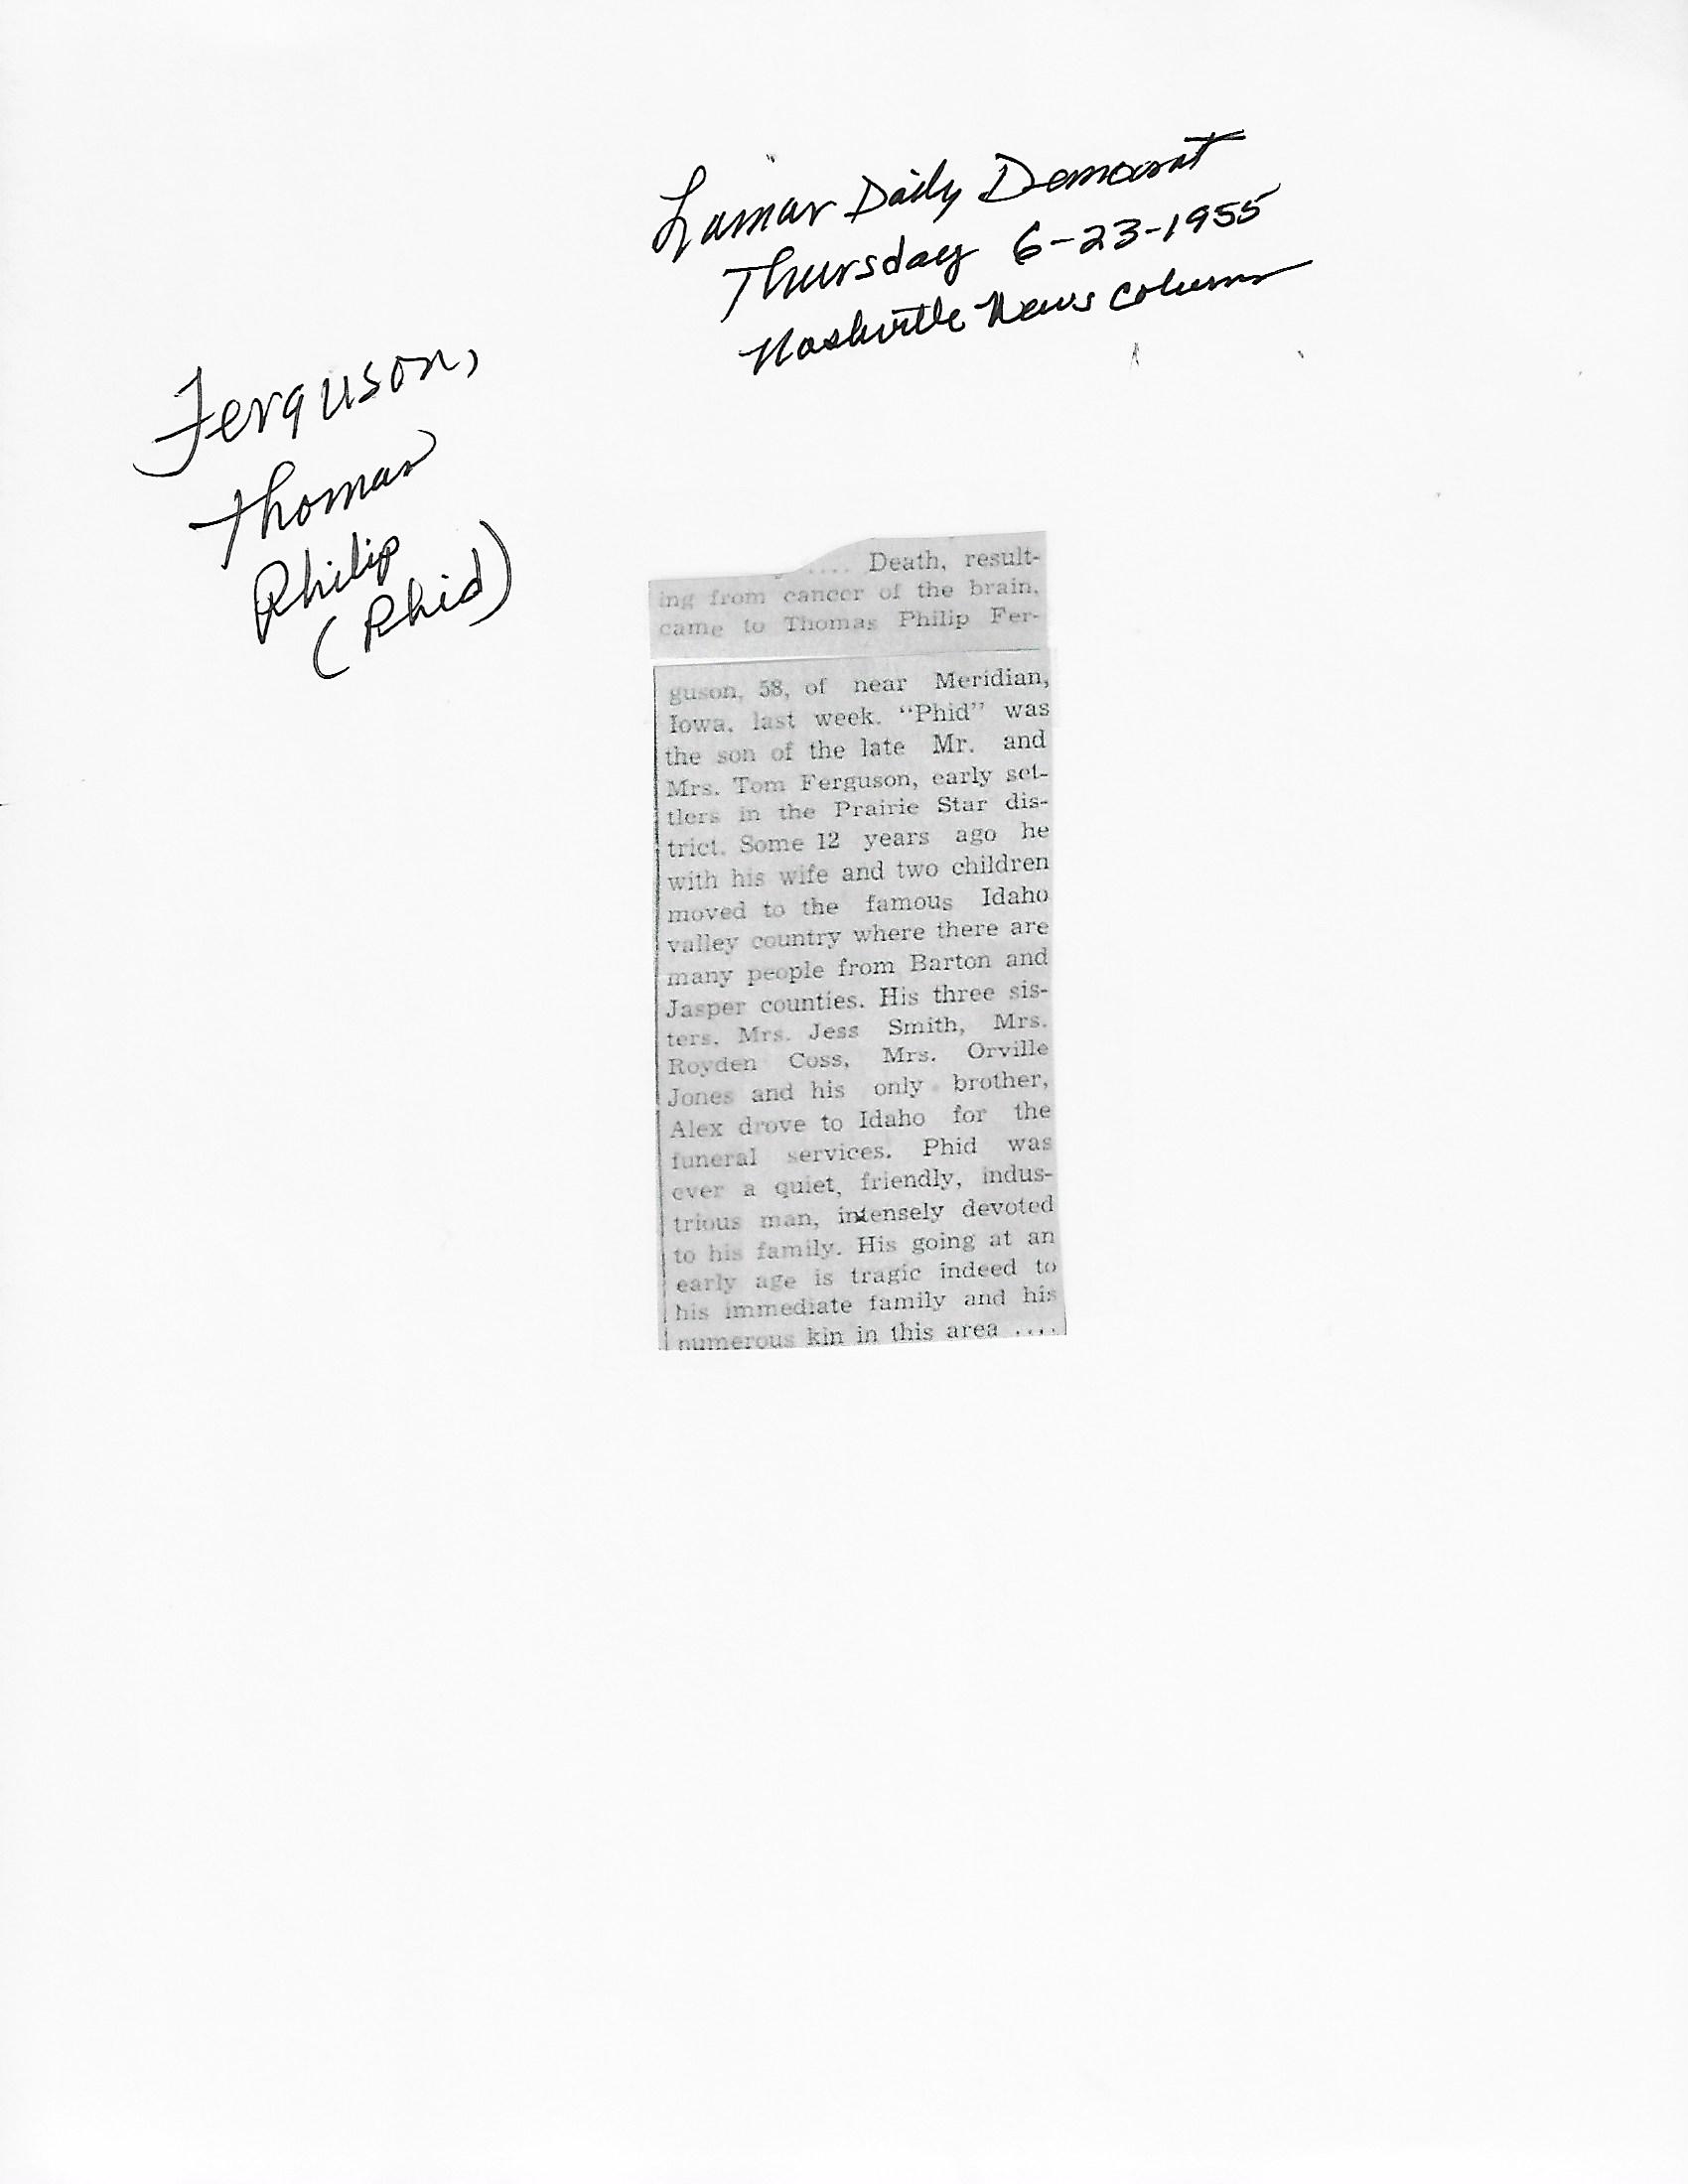 Lamar Daily Democrat
Thursday 6-23-1955
Nashville News Column
Ferguson,
Thomas
Philip
(Phid)
.... Death, result-
ing from cancer of the brain,
came to Thomas Philip Fer-
guson, 58, of near Meridian,
Iowa, last week. “Phid” was
the son of the late Mr. and
Mrs. Tom Ferguson, early set-
tlers in the Prairie Star dis-
trict. Some 12 years ago he
with his wife and two children
moved to the famous Idaho
valley country where there are
many people from Barton and
Jasper counties. His three sis-
ters, Mrs. Jess Smith, Mrs.
Royden Coss, Mrs. Orville
Jones and his only brother,
Alex drove to Idaho for the
funeral services. Phid was
ever a quiet, friendly, indus-
trious man, intensely devoted
to his family. His going at an
early age is tragic indeed to
his immediate family and his
numerous kin in this area ....